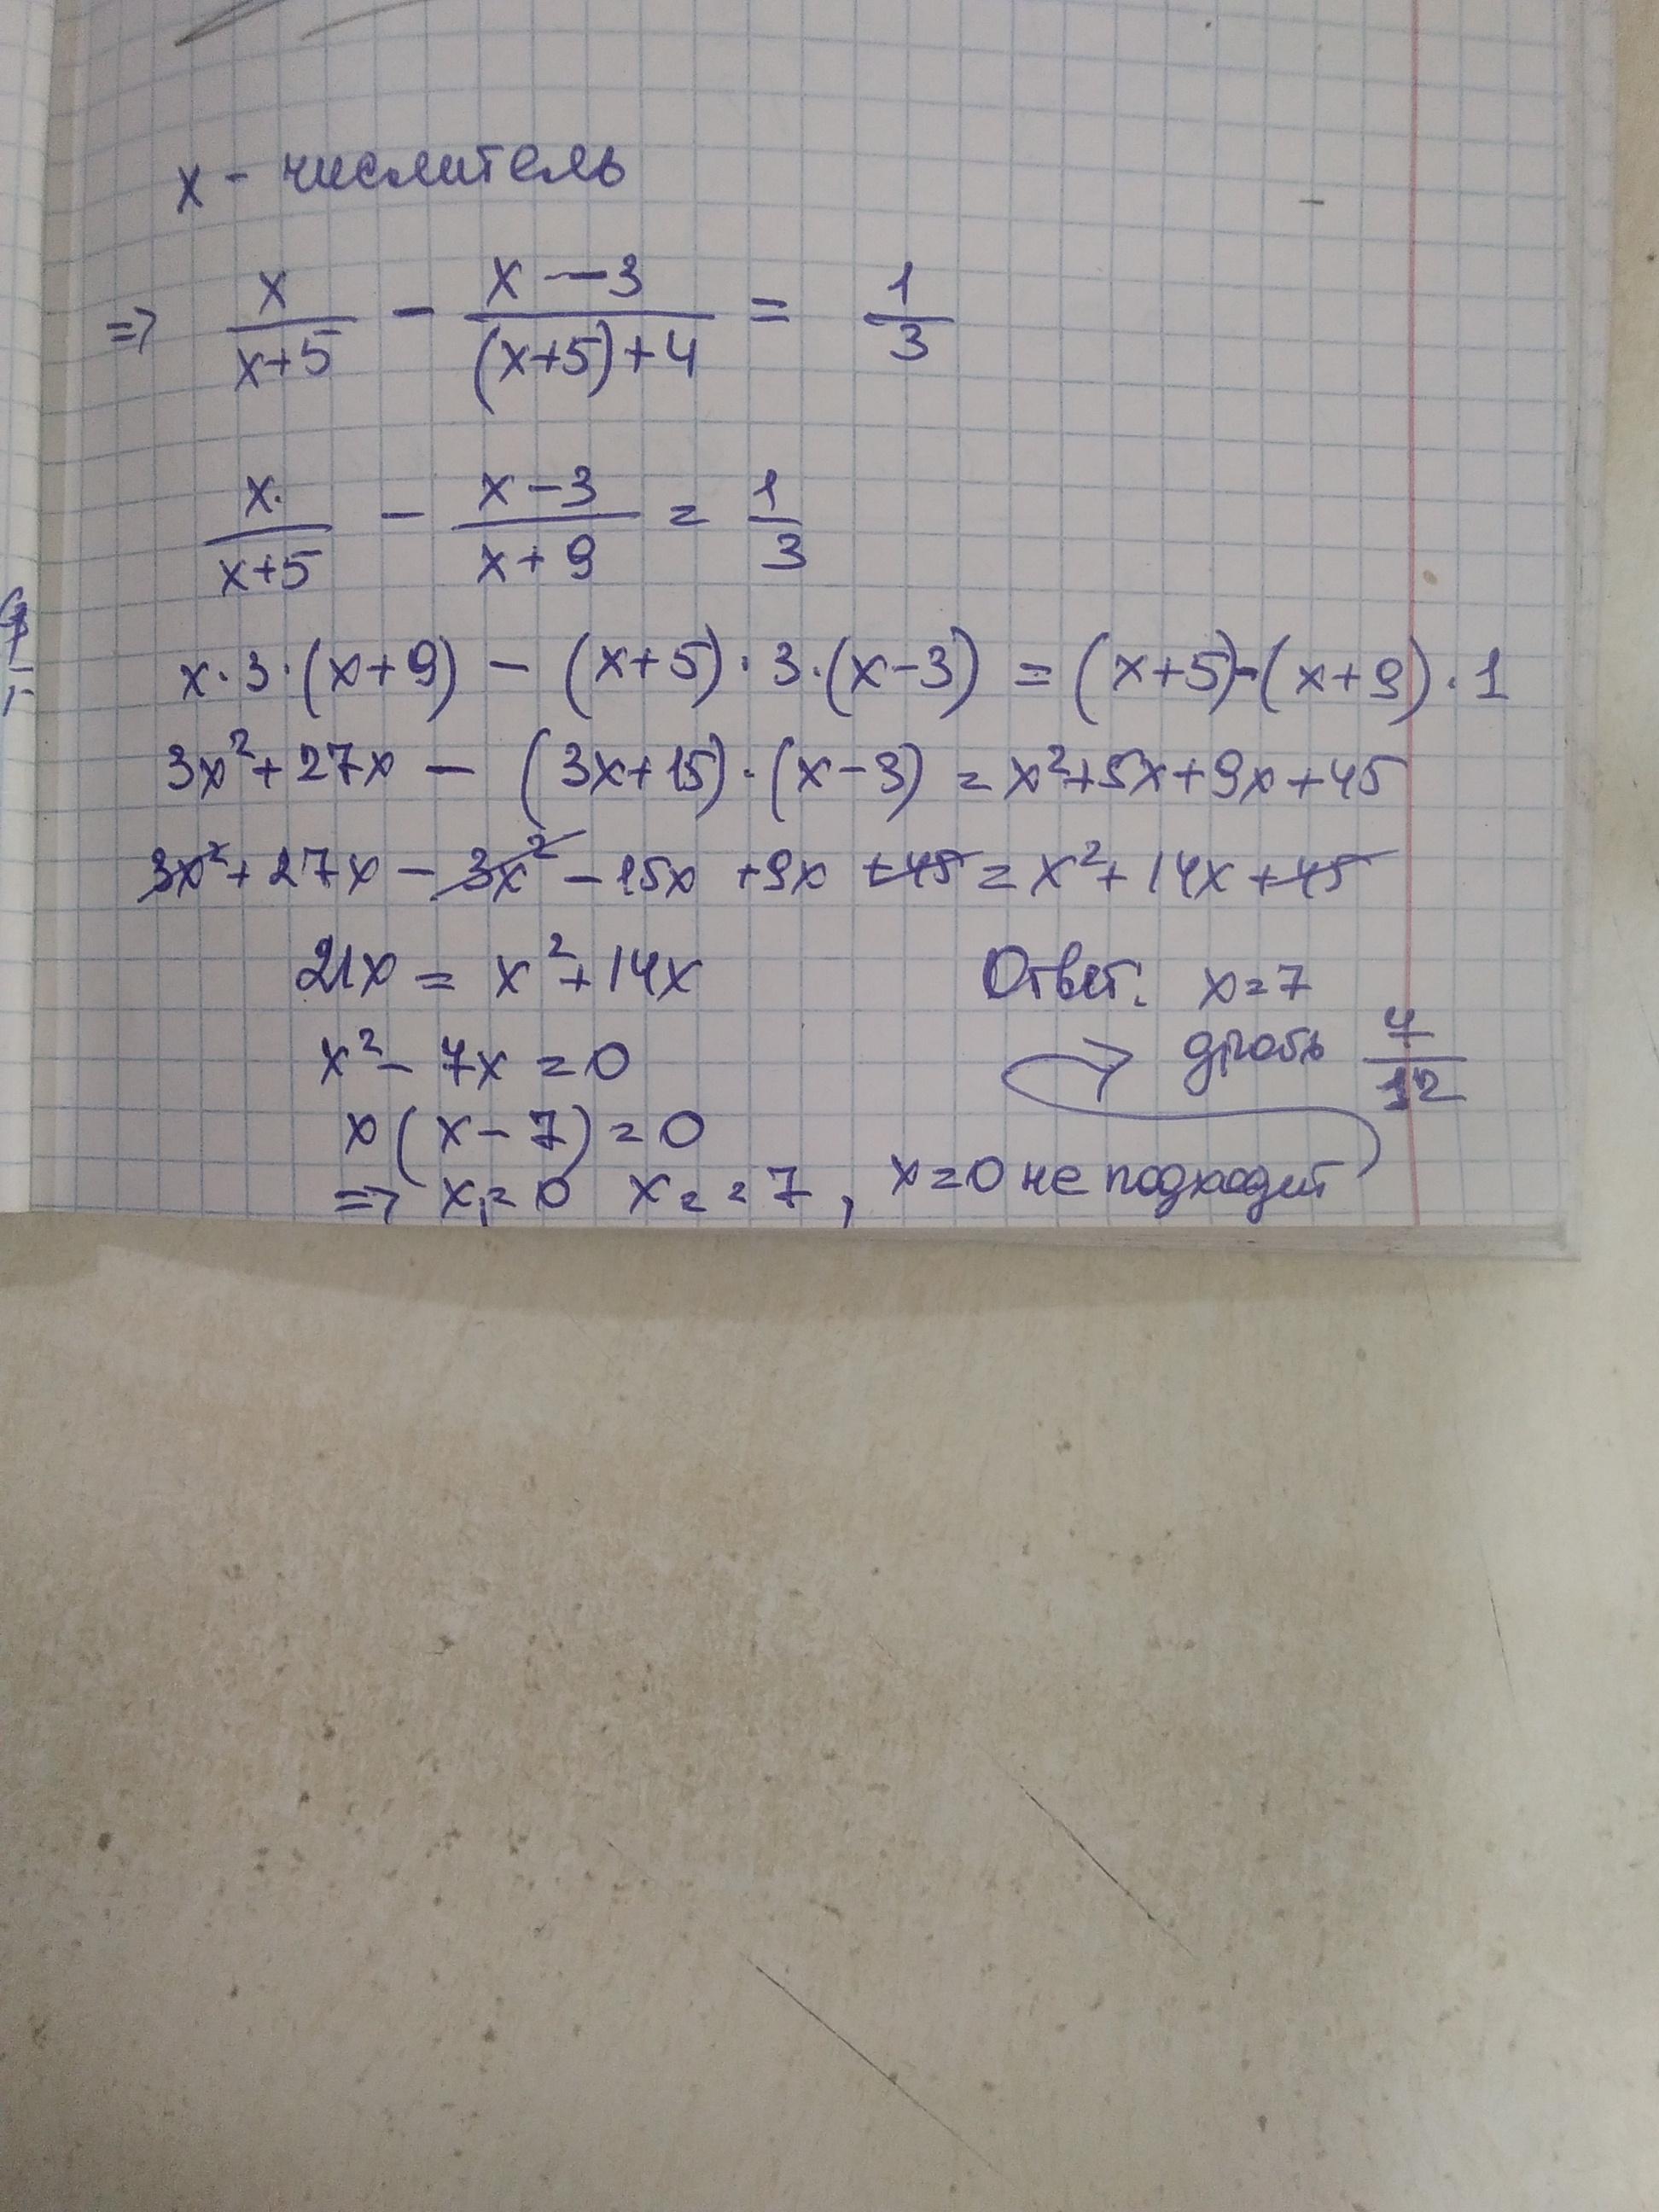 x - числитель
=> x/(x+5) - (x-3)/((x+5)+4) = 1/3
x/(x+5) - (x-3)/(x+9) = 1/3
x·3·(x+9) - (x+5)·3·(x-3) = (x+5)·(x+9)·1
3x²+27x - (3x+15)·(x-3) = x²+5x+9x+45
3x²+27x-3x²-15x+9x+45 = x²+14x+45
21x = x²+14x
x²-7x=0
x(x-7)=0
=> x₁=0 x₂=7, x=0 не подходит
Ответ: x=7
дробь 7/12